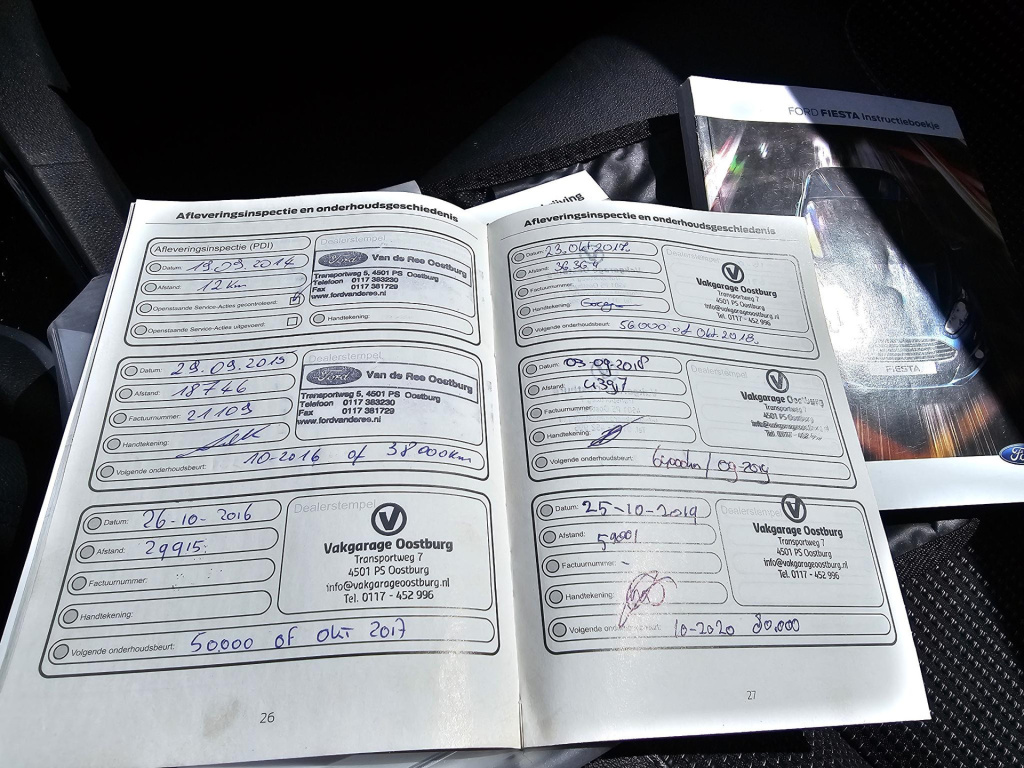 FORD FIESTA Instructieboekje
FIESTA
Afleveringsinspectie en onderhoudsgeschiedenis
Afleveringsinspectie (PDI)
Datum: 19.09.2014
Afstand: 12 Km
Openstaande Service-Acties gecontroleerd:
Openstaande Service-Acties uitgevoerd:
Dealerstempel
Ford
Van de Ree Oostburg
Transportweg 5, 4501 PS Oostburg
Telefoon 0117 383230
Fax 0117 381729
www.fordvanderee.nl
Handtekening:
Datum: 29.09.2015
Afstand: 18746
Factuurnummer: 21109
Handtekening:
Volgende onderhoudsbeurt: 10-2016 of 38000km
Dealerstempel
Ford
Van de Ree Oostburg
Transportweg 5, 4501 PS Oostburg
Telefoon 0117 383230
Fax 0117 381729
www.fordvanderee.nl
Datum: 26-10-2016
Afstand: 29915
Factuurnummer:
Handtekening:
Volgende onderhoudsbeurt: 50000 OF OKT 2017
Dealerstempel
Vakgarage Oostburg
Transportweg 7
4501 PS Oostburg
info@vakgarageoostburg.nl
Tel. 0117 - 452 996
26
Afleveringsinspectie en onderhoudsgeschiedenis
Datum: 23 Okt 2017
Afstand:
Factuurnummer:
Handtekening:
Volgende onderhoudsbeurt: 56000 of Okt. 2018.
Dealerstempel
Vakgarage Oostburg
Transportweg 7
4501 PS Oostburg
info@vakgarageoostburg.nl
Tel. 0117 - 452 996
Datum: 03-09-2018
Afstand:
Factuurnummer:
Handtekening:
Volgende onderhoudsbeurt: 09-2019
Dealerstempel
Vakgarage Oostburg
Transportweg 7
4501 PS Oostburg
Datum: 25-10-2019
Afstand: 59001
Factuurnummer: -
Handtekening:
Volgende 10-2020 80.000
Dealerstempel
Vakgarage Oostburg
Transportweg 7
4501 PS Oostburg
info@vakgarageoostburg.nl
Tel. 0117 - 452 996
27